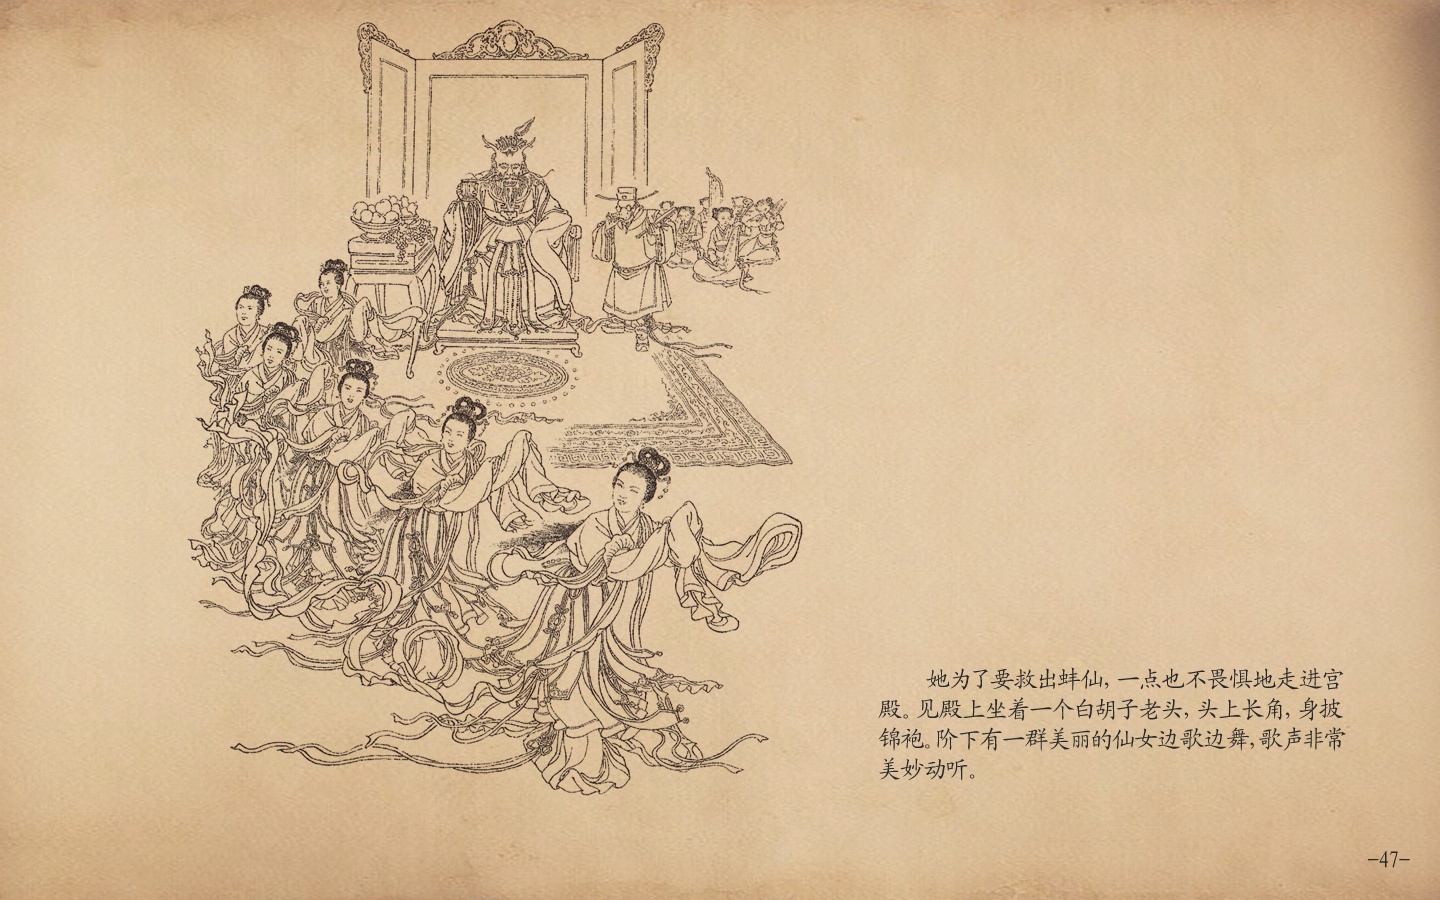 她为了要救出蚌仙，一点也不畏惧地走进宫
殿。见殿上坐着一个白胡子老头，头上长角，身披
锦袍。阶下有一群美丽的仙女边歌边舞，歌声非常
美妙动听。
-47-